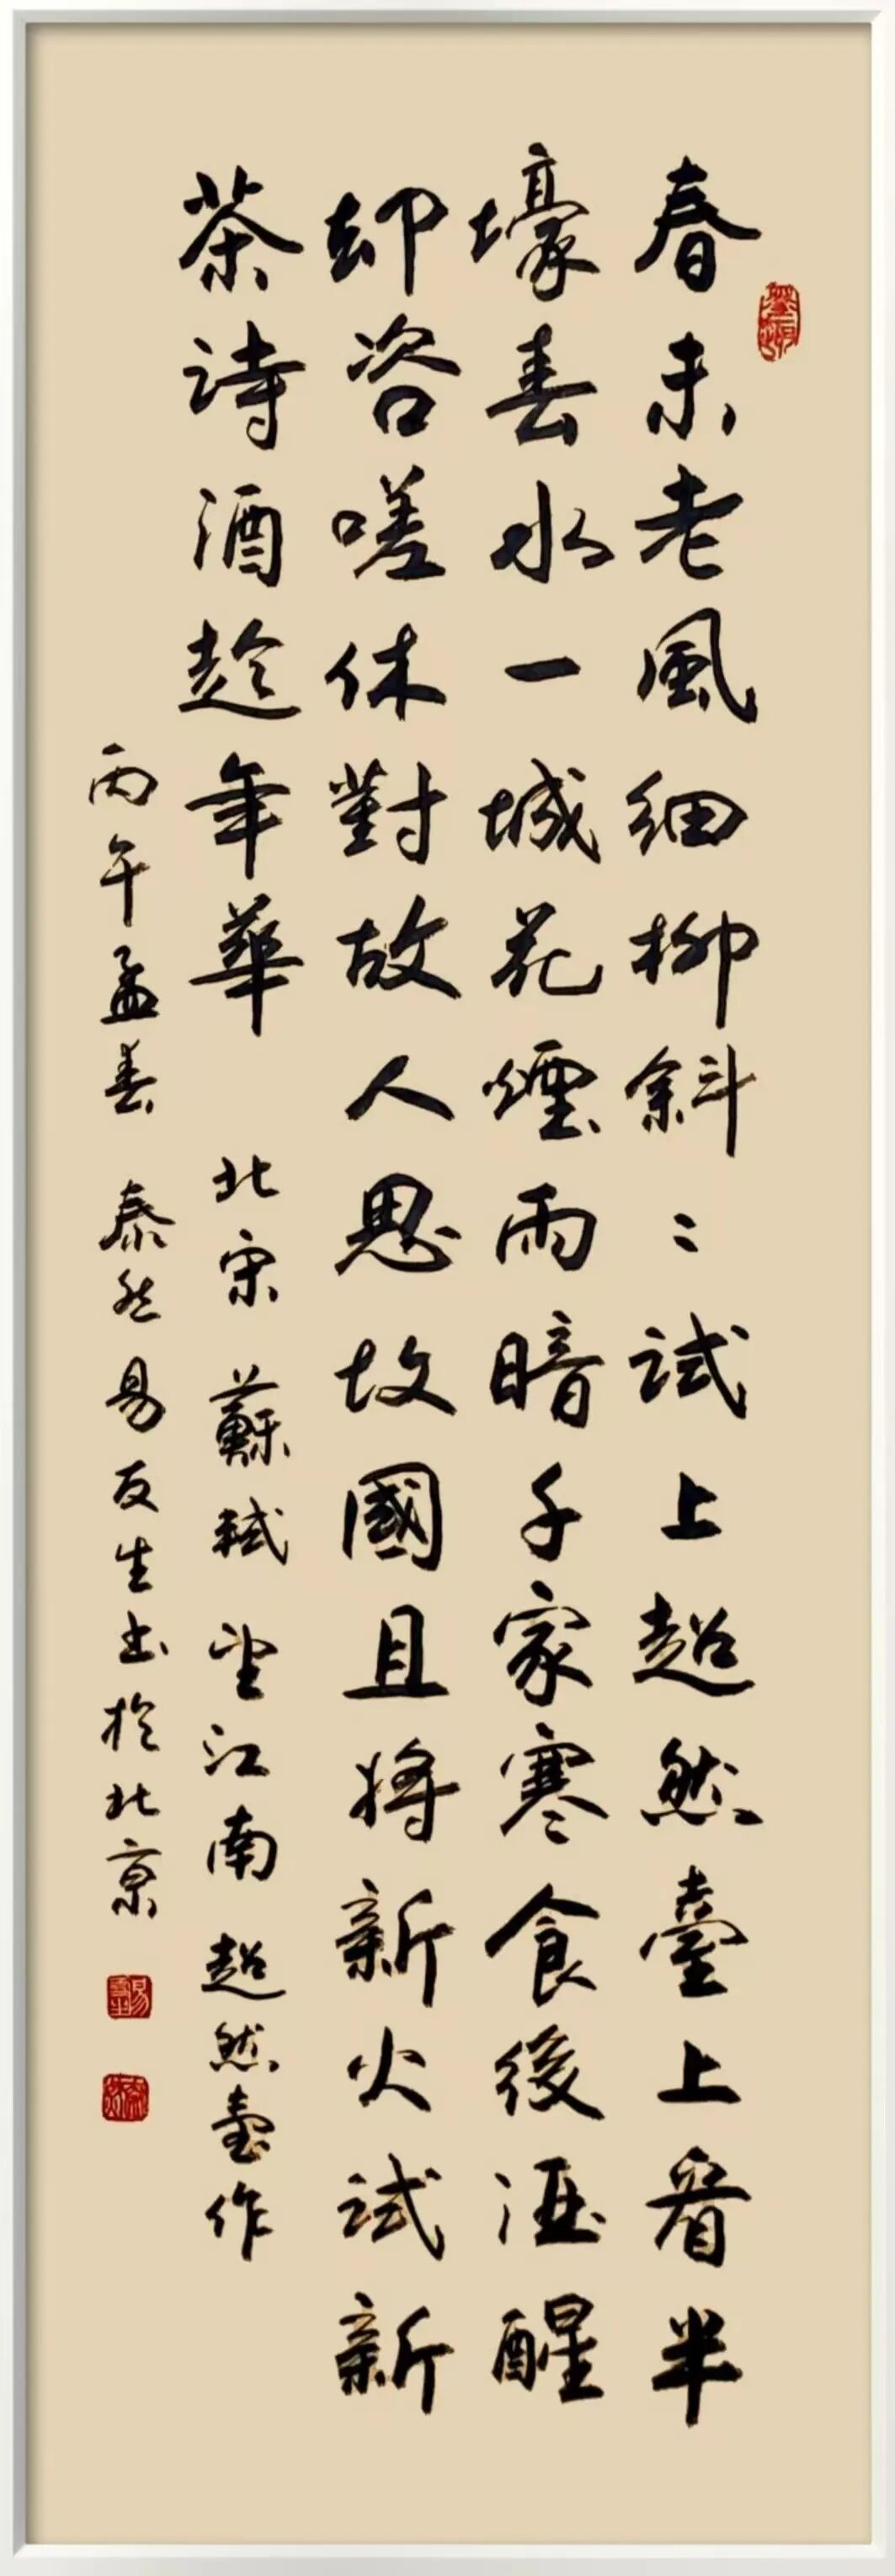 春未老風細柳斜〻試上超然臺上看半
壕春水一城花煙雨暗千家寒食後酒醒
却咨嗟休對故人思故國且將新火試新
茶詩酒趁年華 北宋 蘇軾 望江南 超然臺作
丙午孟春 泰然易友生书於北京